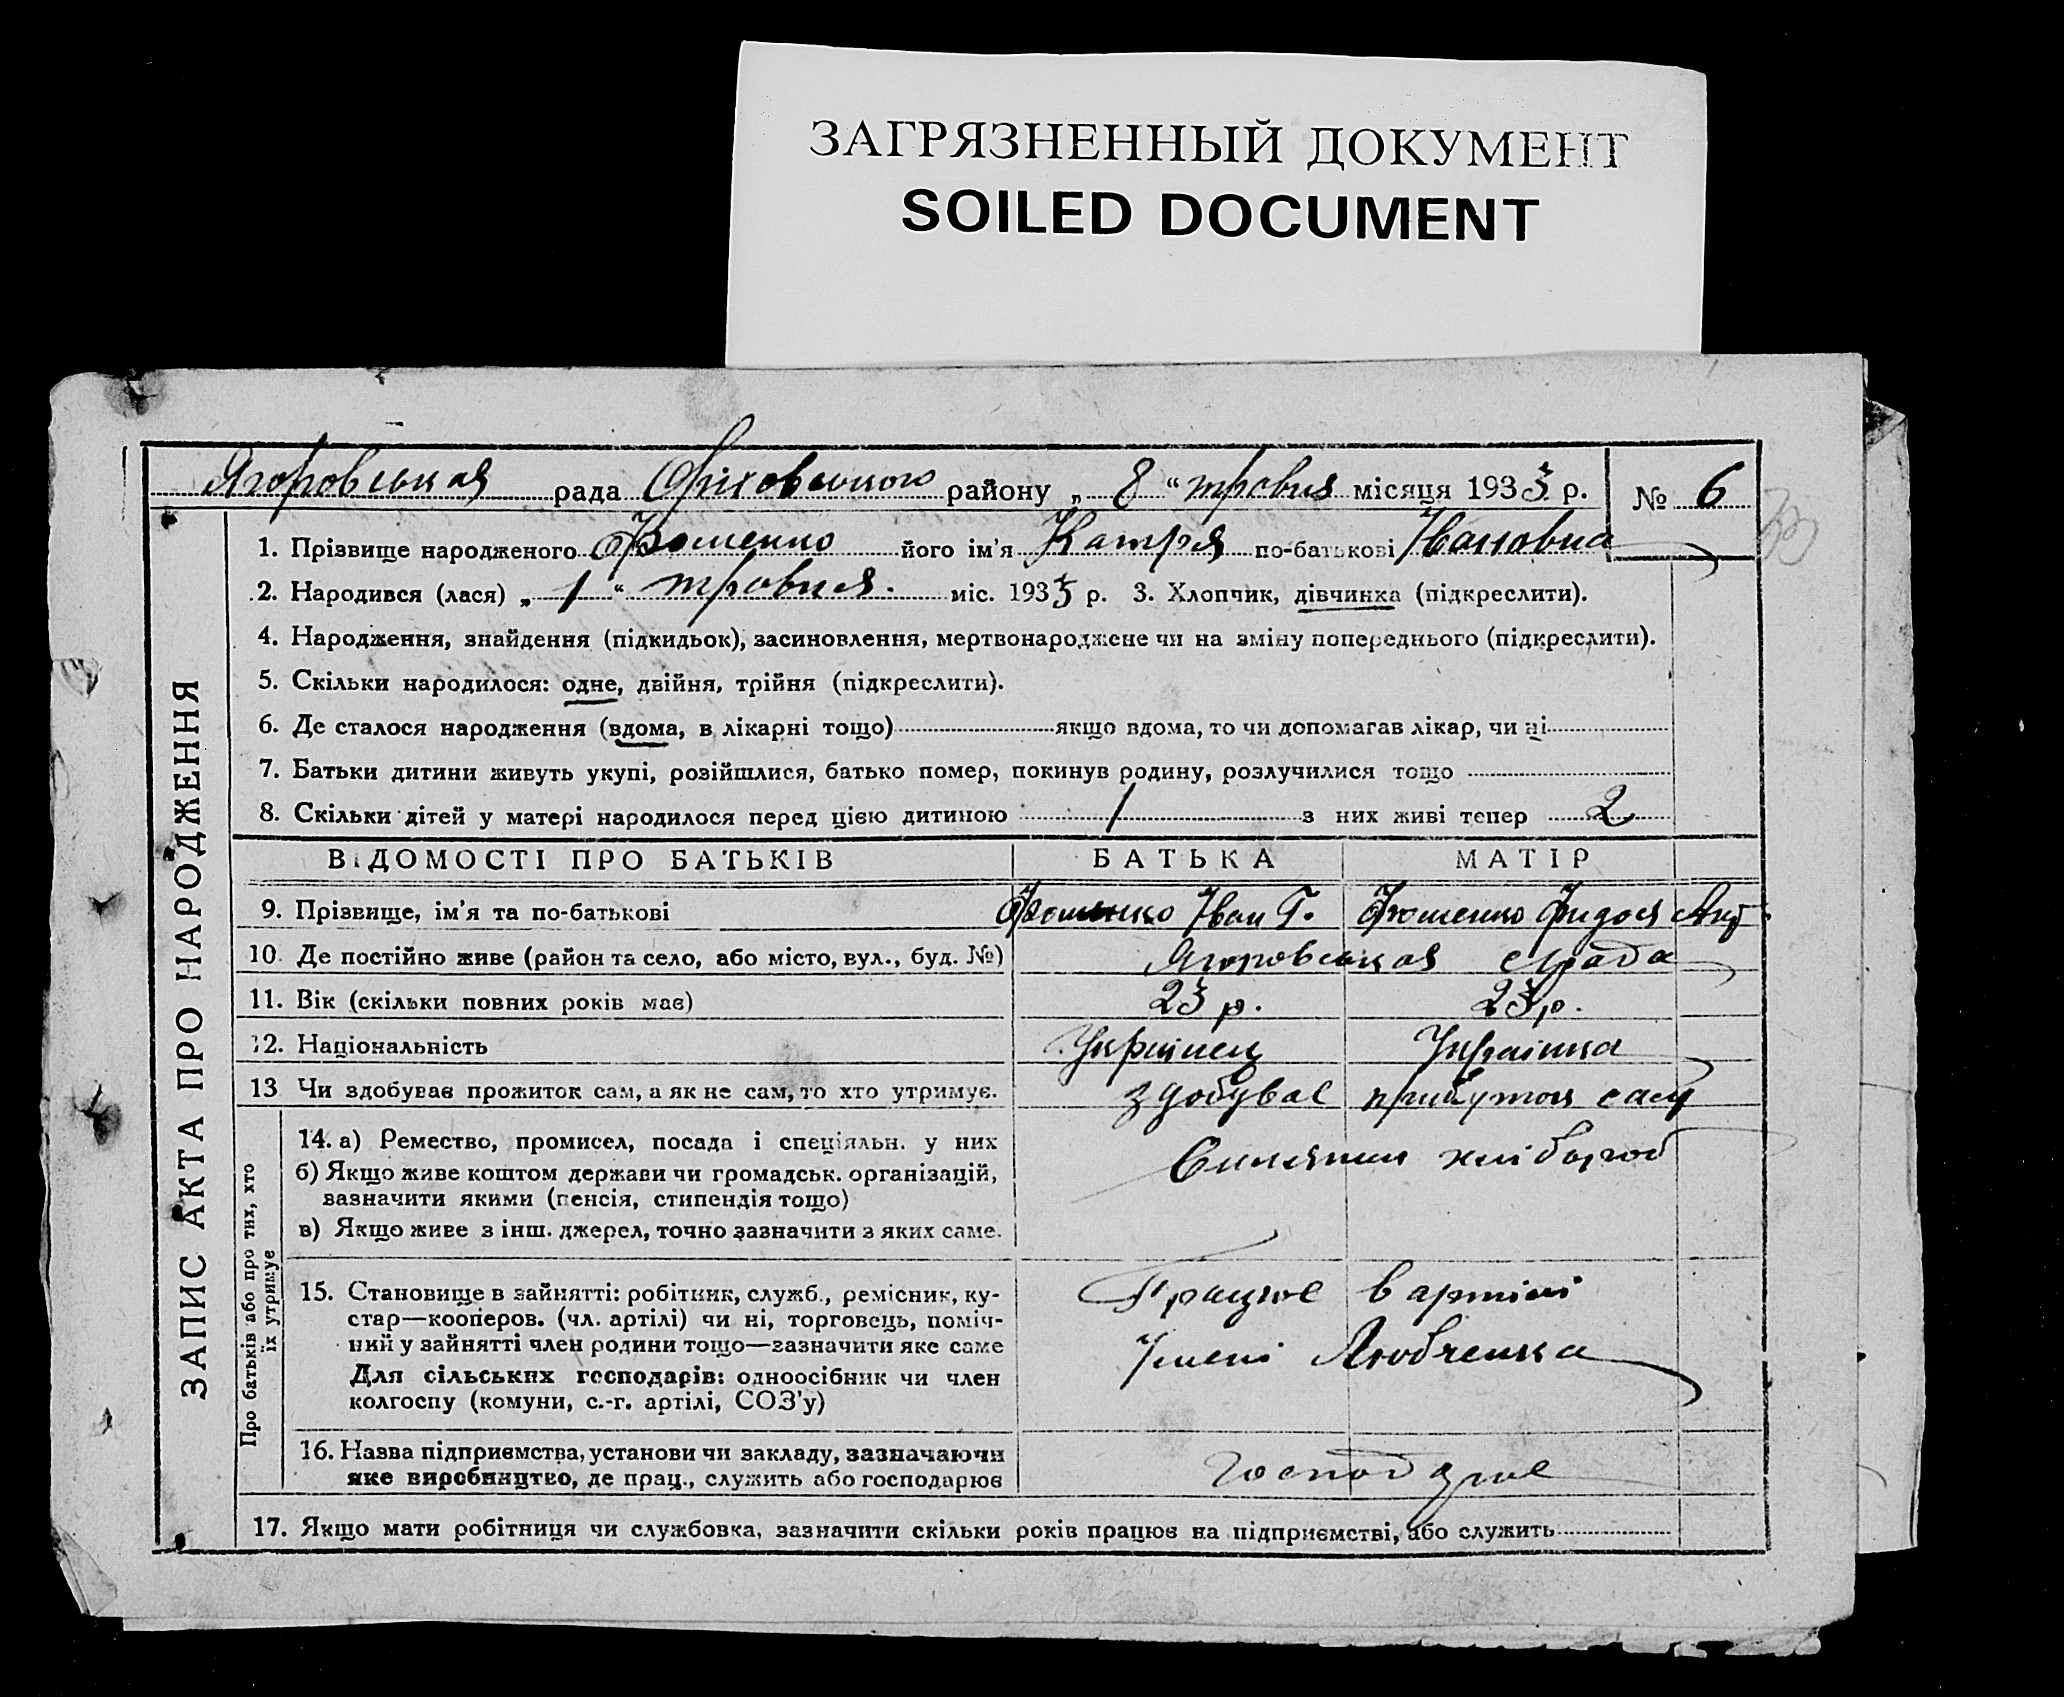 ЗАГРЯЗНЕННЫЙ ДОКУМЕНТ
SOILED DOCUMENT
Ягоровськая рада Оріховського району „ 8 “ травня місяця 1933 р. № 6
ЗАПИС АКТА ПРО НАРОДЖЕННЯ
1. Прізвище народженого Фоменко його ім'я Катря по-батькові Івановна
2. Народився (лася) „ 1 “ травня. міс. 1933 р. 3. Хлопчик, дівчинка (підкреслити).
4. Народження, знайдення (підкидьок), засиновлення, мертвонароджене чи на зміну попереднього (підкреслити).
5. Скільки народилося: одне, двійня, трійня (підкреслити).
6. Де сталося народження (вдома, в лікарні тощо) якщо вдома, то чи допомагав лікар, чи ні
7. Батьки дитини живуть укупі, розійшлися, батько помер, покинув родину, розлучилися тощо
8. Скільки дітей у матері народилося перед цією дитиною 1 з них живі тепер 2
ВІДОМОСТІ ПРО БАТЬКІВ БАТЬКА МАТІР
9. Прізвище, ім'я та по-батькові Фоменко Іван Г. Фоменко Фидося
10. Де постійно живе (район та село, або місто, вул., буд. №) Ягоровськая с/рада
11. Вік (скільки повних років має) 23 р. 23 р.
12. Національність Українец Українка
13 Чи здобуває прожиток сам, а як не сам, то хто утримує. здобувае прибуток сам
Про батьків або про тих, хто
їх утримує
14. а) Ремество, промисел, посада і спеціяльн. у них
б) Якщо живе коштом держави чи громадськ. організацій,
зазначити якими (пенсія, стипендія тощо)
в) Якщо живе з інш. джерел, точно зазначити з яких саме.
15. Становище в зайнятті: робітник, служб., ремісник, ку-
стар—кооперов. (чл. артілі) чи ні, торговець, поміч-
ний у зайнятті член родини тощо—зазначити яке саме
Для сільських господарів: одноосібник чи член
колгоспу (комуни, с.-г. артілі, СОЗ'у)
Працюе в артілі
Імені Любченка
16. Назва підприємства, установи чи закладу, зазначаючи
яке виробництво, де прац., служить або господарює
господарюе
17. Якщо мати робітниця чи службовка, зазначити скільки років працює на підприємстві, або служить